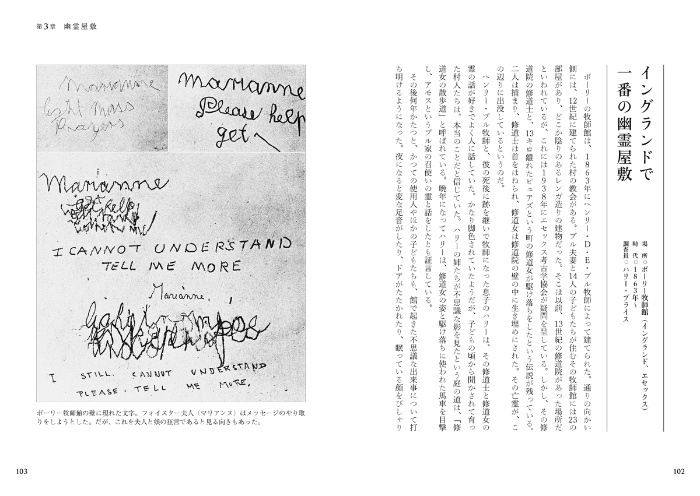 イングランドで
一番の幽霊屋敷
場 所○ボーリー牧師館（イングランド、エセックス）
時 代○1863年〜
調査員○ハリー・プライス
ボーリーの牧師館は、1863年にヘンリー・D・E・ブル牧師によって建てられた。通りの向かい
側には、12世紀に建てられた村の教会がある。ブル夫妻と14人の子どもたちが住むその牧師館には23の
部屋があり、どこか陰りのあるレンガ造りの建物だった。そこは以前、13世紀の修道院があった場所だ
といわれているが、これには1938年にエセックス考古学協会が疑問を呈している。しかし、その修
道院の修道士と、13キロ離れたビュアズという町の修道女が駆け落ちをしたという伝説が残っている。
二人は捕まり、修道士は首をはねられ、修道女は修道院の壁の中に生き埋めにされた。その亡霊が、こ
の辺りに出没しているというのだ。
ヘンリー・ブル牧師と、彼の死後に跡を継いで牧師になった息子のハリーは、その修道士と修道女の
霊の話が好きでよく人に話していた。かなり脚色されていたようだが、子どもの頃から聞かされて育っ
た村人たちは、本当のことだと信じていた。ハリーの姉たちが不思議な影を見たという庭の道は、「修
道女の散歩道」と呼ばれている。晩年になってハリーは、修道女の姿と駆け落ちに使われた馬車を目撃
し、アモスというブル家の召使いの霊と話をしたとも証言している。
その後何年かたつと、かつての使用人やほかの子どもたちも、館で起きた不思議な出来事について打
ち明けるようになった。夜になると変な足音がしたり、ドアがたたかれたり、眠っている顔をぴしゃり
102
第3章 幽霊屋敷
Marianne
light mass
Prayers
Marianne
Please help
get
Marianne
I CANNOT UNDERSTAND
TELL ME MORE
Marianne,
I STILL CANNOT UNDERSTAND
PLEASE TELL ME MORE.
ボーリー牧師館の壁に現れた文字。フォイスター夫人（マリアンヌ）はメッセージのやり取
りをしようとした。だが、これを夫人と娘の狂言であると見る向きもあった。
103